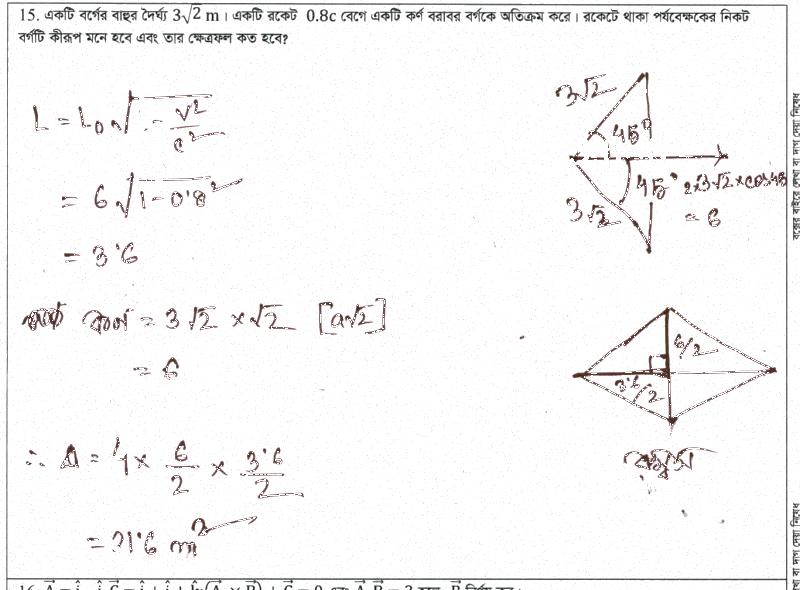 15. একটি বর্গের বাহুর দৈর্ঘ্য 3√2 m । একটি রকেট 0.8c বেগে একটি কর্ণ বরাবর বর্গকে অতিক্রম করে। রকেটে থাকা পর্যবেক্ষকের নিকট
বর্গটি কীরূপ মনে হবে এবং তার ক্ষেত্রফল কত হবে?
L = L₀ √1 - v²/c²
= 6 √1 - 0.8²
= 3.6
কর্ণ = 3√2 × √2 [a√2]
= 6
∴ A = 4 × 6/2 × 3.6/2
= 21.6 m²
3√2
45°
45°
3√2
2×3√2×cos45
= 6
6/2
3.6/2
রম্বস
বক্সের বাইরে লেখা বা দাগ দেয়া নিষেধ